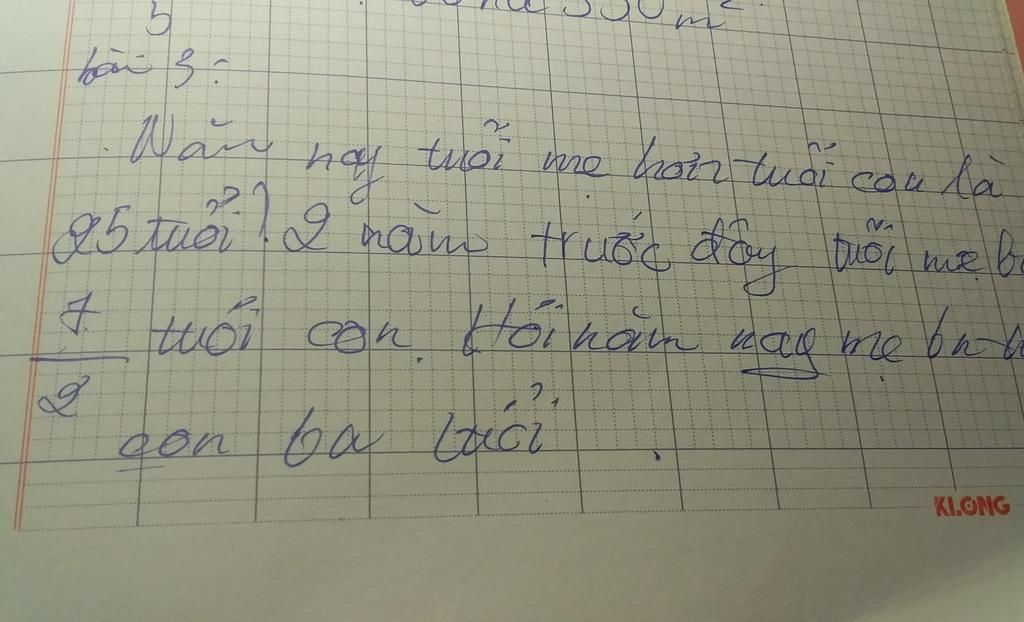 5 330 m²
bài 3:
Năm nay tuổi mẹ hơn tuổi con là
25 tuổi. 2 năm trước đây tuổi mẹ
7/2 tuổi con. Hỏi năm nay mẹ
con ba tuổi
KLONG